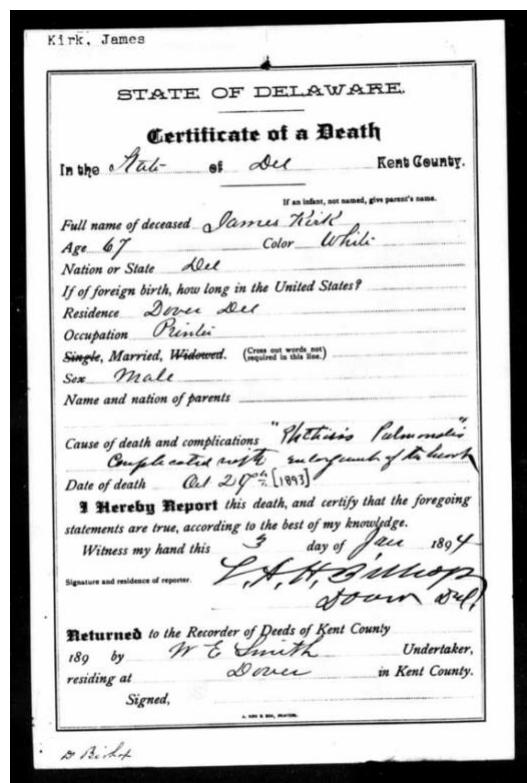 Kirk, James
STATE OF DELAWARE.
Certificate of a Death
In the State of Del Kent County.
If an infant, not named, give parent's name.
Full name of deceased James Kirk
Age 67 Color White
Nation or State Del
If of foreign birth, how long in the United States?
Residence Dover Del
Occupation Printer
Single, Married, Widowed. (Cross out words not required in this line.)
Sex Male
Name and nation of parents
Cause of death and complications "Phthisis Pulmonalis"
Complicated with enlargement of the heart
Date of death Oct 27th [1893]
I Hereby Report this death, and certify that the foregoing
statements are true, according to the best of my knowledge.
Witness my hand this 3 day of Jan 1894
Signature and residence of reporter. L. A. H. Bishop
Dover Del.
Returned to the Recorder of Deeds of Kent County
189 by W E Smith Undertaker,
residing at Dover in Kent County.
Signed,
D Bishop